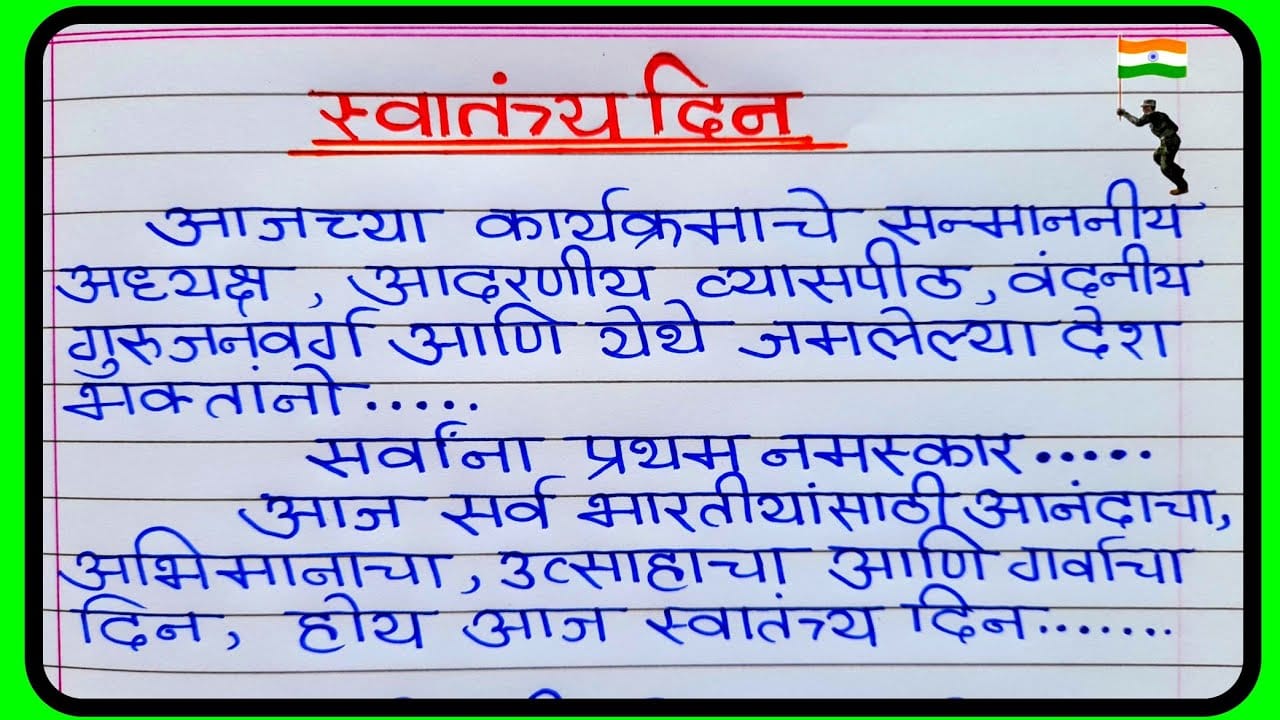 स्वातंत्र्य दिन
आजच्या कार्यक्रमाचे सन्माननीय
अध्यक्ष, आदरणीय व्यासपीठ, वंदनीय
गुरुजनवर्ग आणि येथे जमलेल्या देश
भक्तांनो.....
सर्वांना प्रथम नमस्कार.....
आज सर्व भारतीयांसाठी आनंदाचा,
अभिमानाचा, उत्साहाचा आणि गर्वाचा
दिन, होय आज स्वातंत्र्य दिन.......